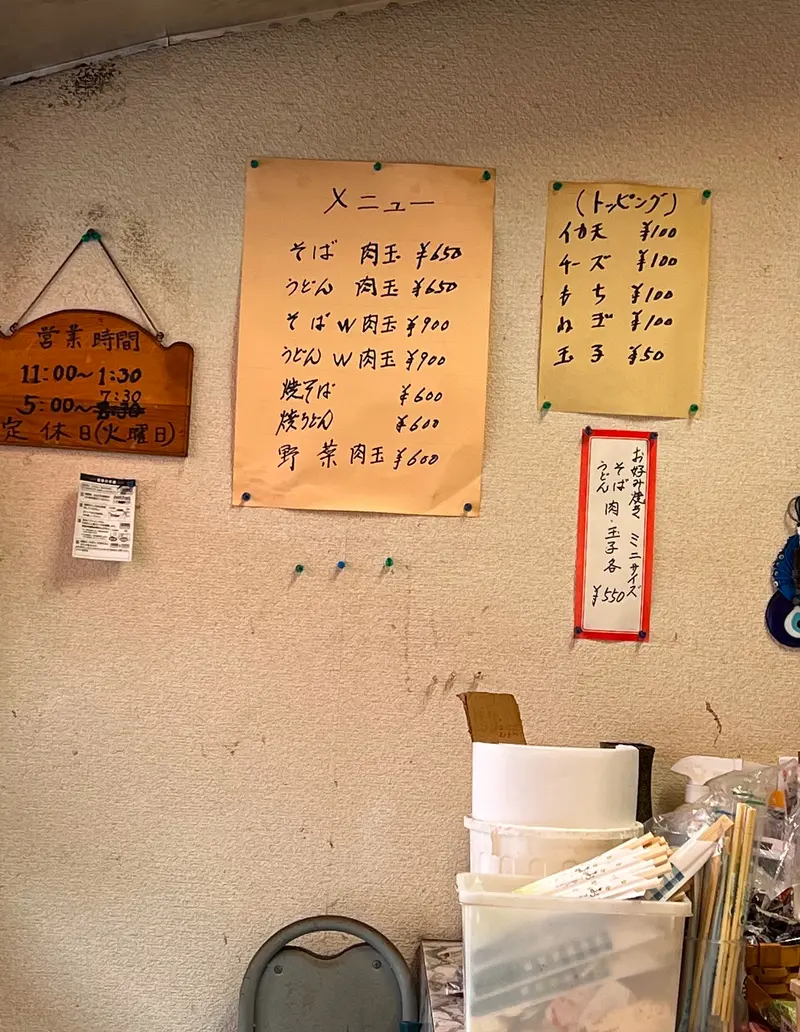 営業時間
11:00〜1:30
7:30
5:00〜8:30
定休日(火曜日)
メニュー
そば 肉玉 ¥650
うどん 肉玉 ¥650
そば W肉玉 ¥900
うどん W肉玉 ¥900
焼そば ¥600
焼うどん ¥600
野菜 肉玉 ¥600
(トッピング)
イカ天 ¥100
チーズ ¥100
もち ¥100
ねぎ ¥100
玉子 ¥50
お好み焼き ミニサイズ
そば
うどん 肉・玉子各
¥550